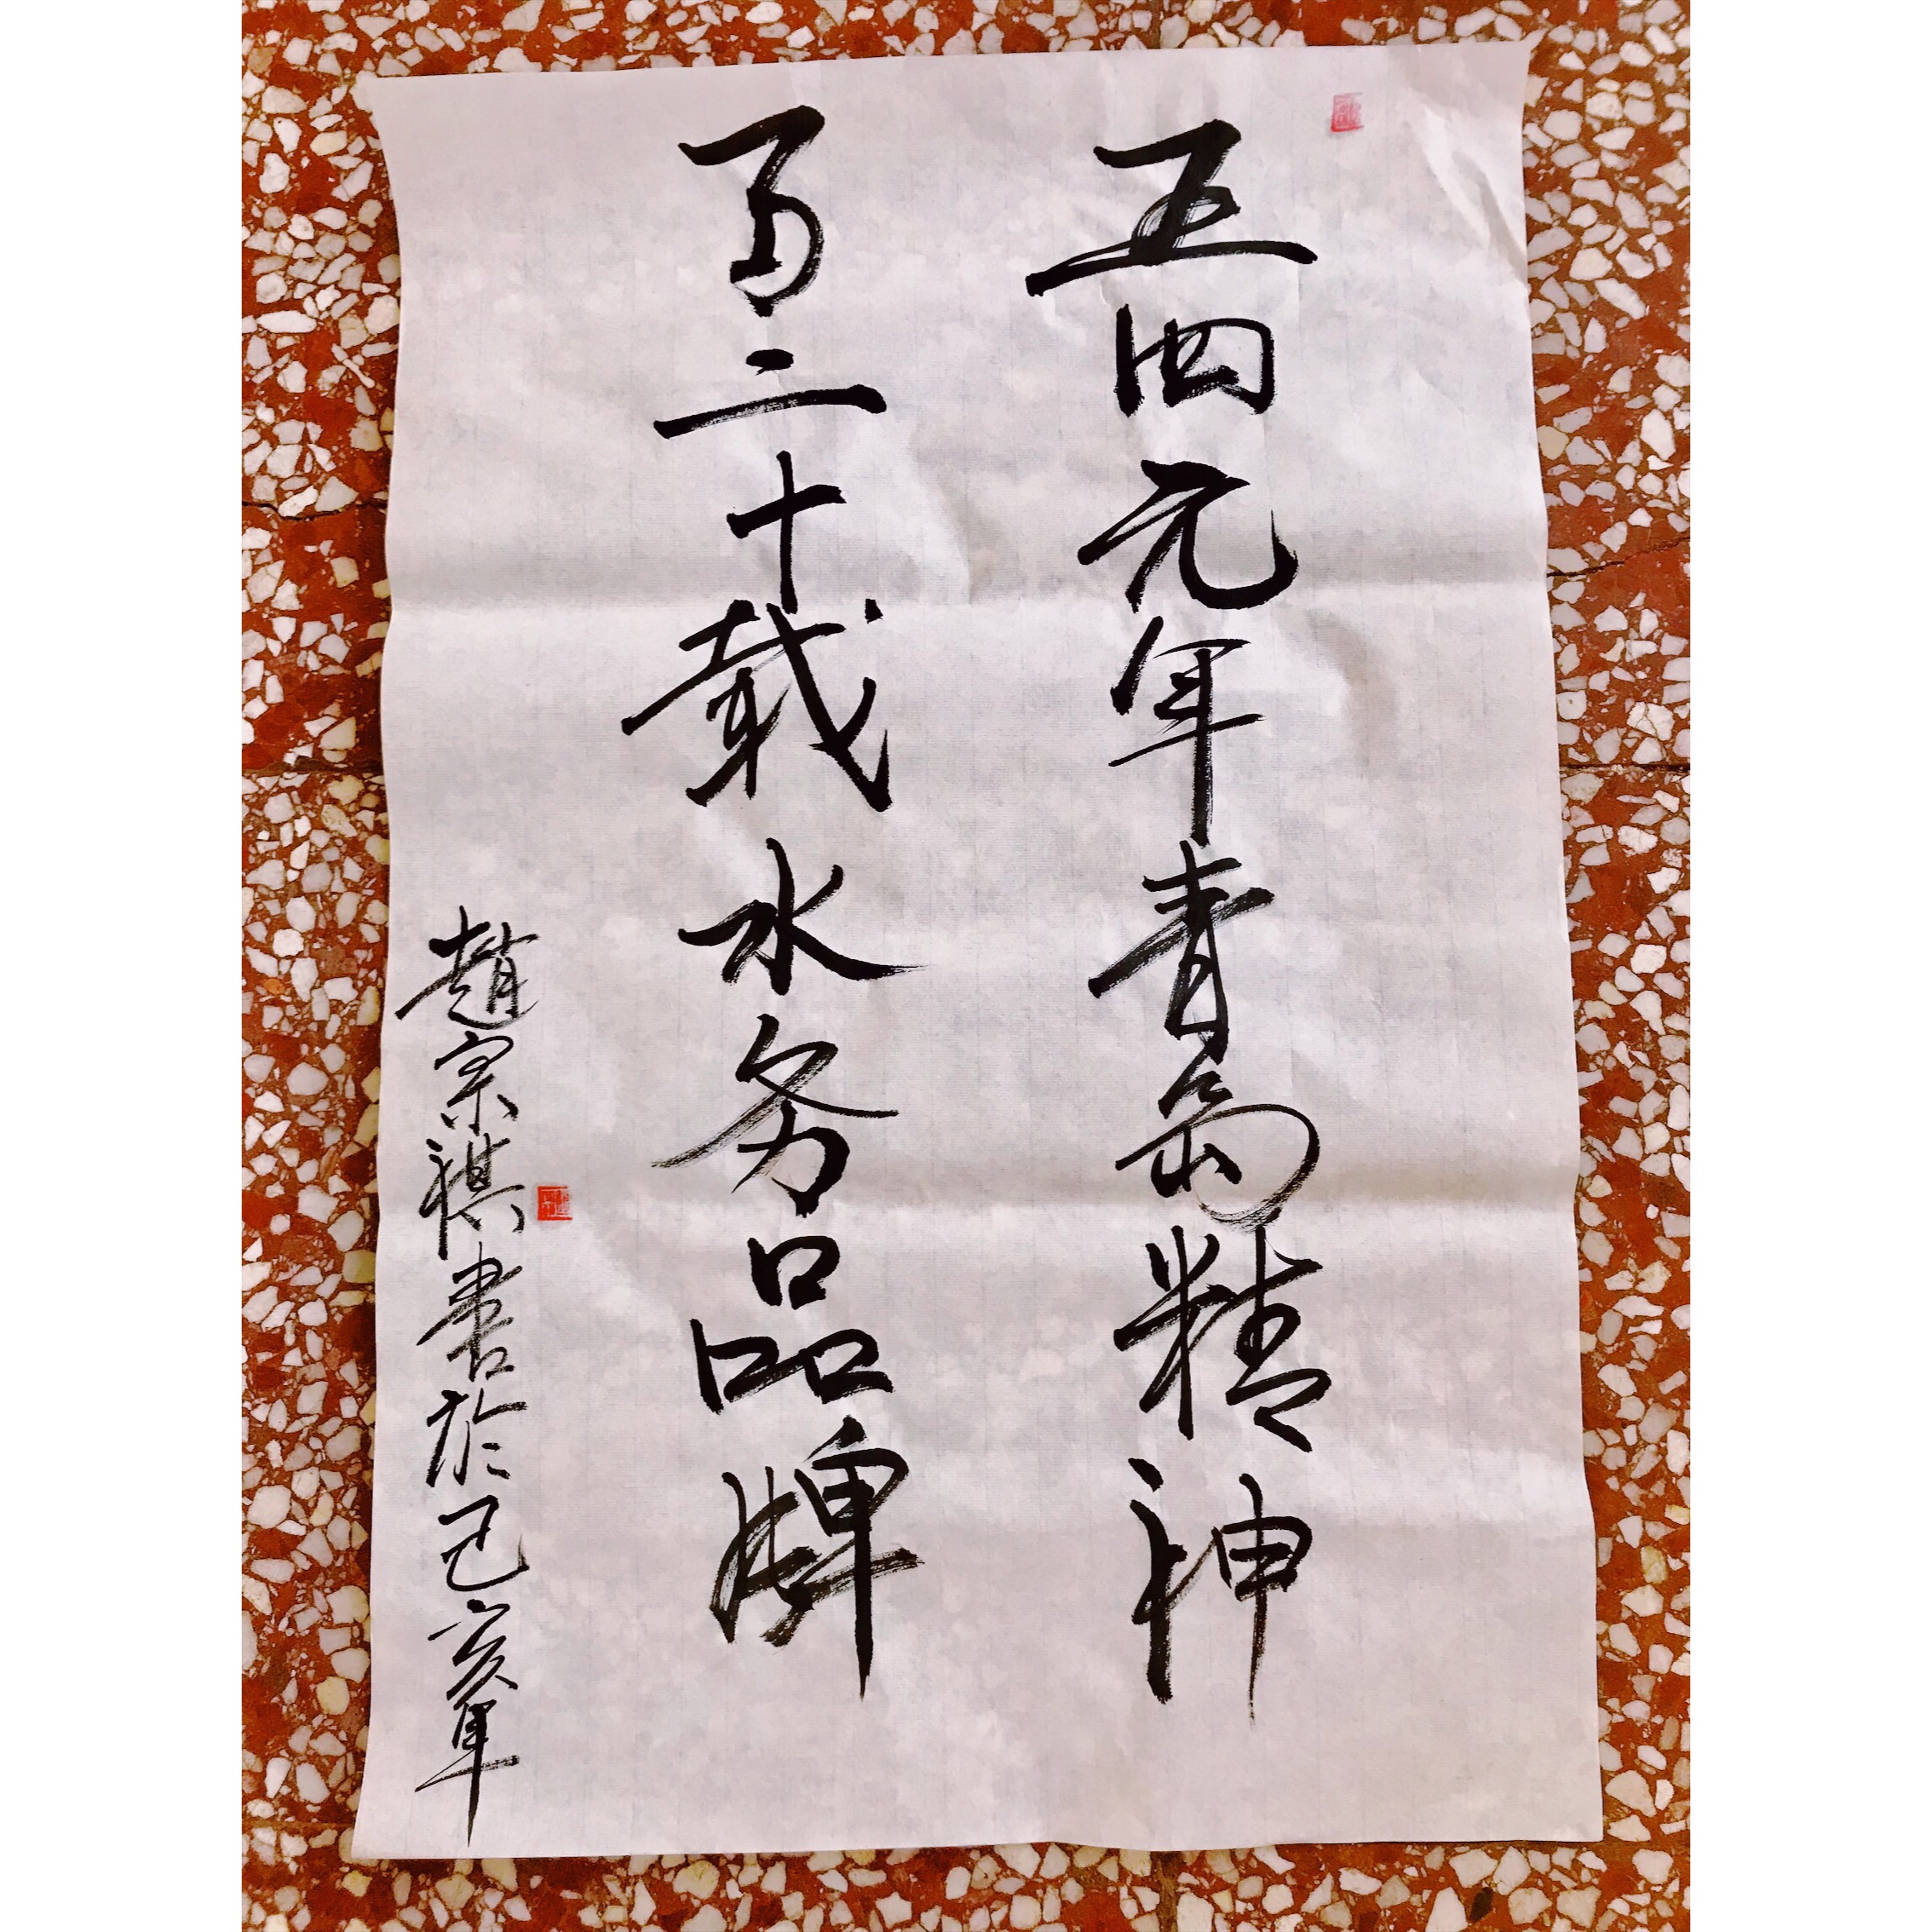 五四元年青岛精神
百二十载水务品牌
趙宗祺书於己亥年